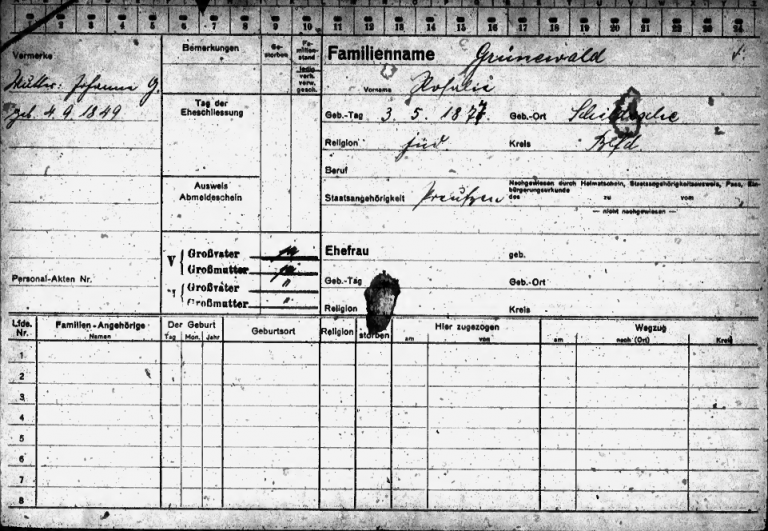 2 3 4 5 6 7 8 9 10 11 12 13 14 15 16 17 18 19 20 21 22 23 24
Vermerke
Mutter: Johanna G.
geb. 4.9.1849
Personal-Akten Nr.
Bemerkungen
Ge-storben
Fa-milien-stand
ledig
verh.
verw.
gesch.
Tag der
Eheschliessung
Ausweis
Abmeldeschein
V { Großvater
Großmutter
Großvater "
Großmutter "
Familienname Grünewald
Vorname Rosalie
Geb.-Tag 3. 5. 1877. Geb.-Ort Schildesche
Religion jüd Kreis Blfd
Beruf
Staatsangehörigkeit Preußen
Nachgewiesen durch Heimatschein, Staatsangehörigkeitsausweis, Pass, Ein-
bürgerungsurkunde
des zu vom
— nicht nachgewiesen —
Ehefrau geb.
Geb.-Tag Geb.-Ort
Religion Kreis
Lfde. Nr. Familien-Angehörige Namen Der Geburt Tag Mon. Jahr Geburtsort Religion storben Hier zugezogen am von Wegzug am nach (Ort) Kreis
1
2
3
4
5
6
7
8